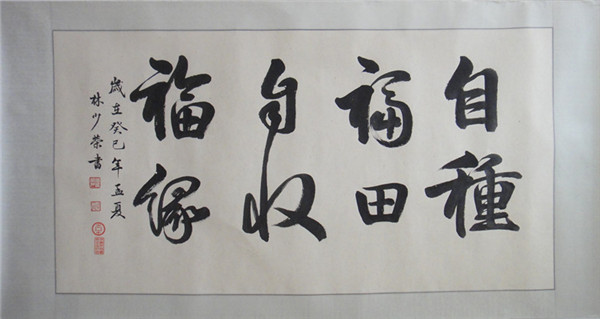 自種
福田
自收
福緣
歲在癸巳年孟夏
林少榮書